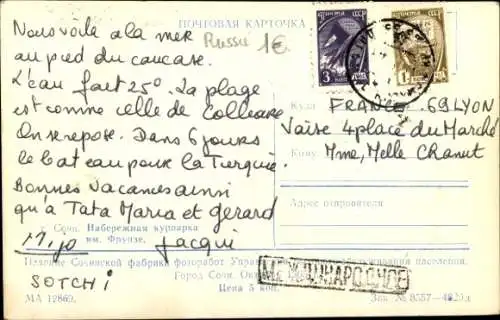 ПОЧТОВАЯ КАРТОЧКА
Nous voilà a la mer
au pied du caucase.
Russie 1€
L'eau fait 25°. La plage
est comme celle de Collioure
On se repose. Dans 6 jours
le bateau pour la Turquie.
Bonnes vacances ainsi
qu'à Tata Maria et Gerard
Jacqui
SOTCHI
ПОЧТА
3
1
Куда FRANCE 69 LYON
Vaise 4 place du Marché
Кому Mme, Melle Chanut
Адрес отправителя
г. Сочи. Набережная курпарка
им. Фрунзе.
Издание Сочинской фабрики фоторабот Управления бытового обслуживания населения.
Город Сочи
МЕЖДУНАРОДНОЕ
Цена 5 коп.
МА 12869.
Зак. № 8557-